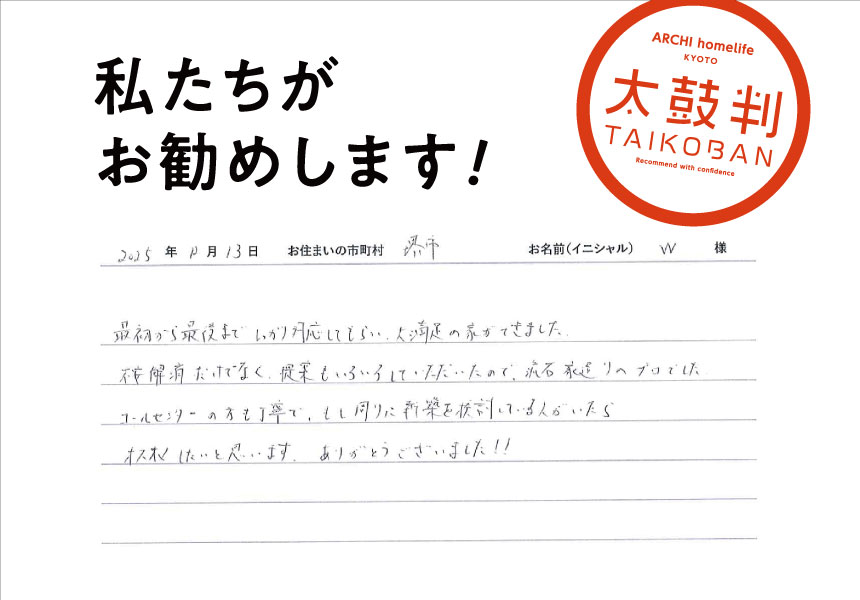 私たちが
お勧めします!
ARCHI homelife
KYOTO
太鼓判
TAIKOBAN
Recommend with confidence
2025 年 月 13 日 お住まいの市町村 堺市 お名前(イニシャル) W 様
最初から最後までしっかり対応してもらい、大満足の家ができました。
解消だけでなく、提案もいろいろしていただいたので、流石家造りのプロでした
コールセンターの方も丁寧で、もし周りに新築を検討している人がいたら
オススメしたいと思います。ありがとうございました!!